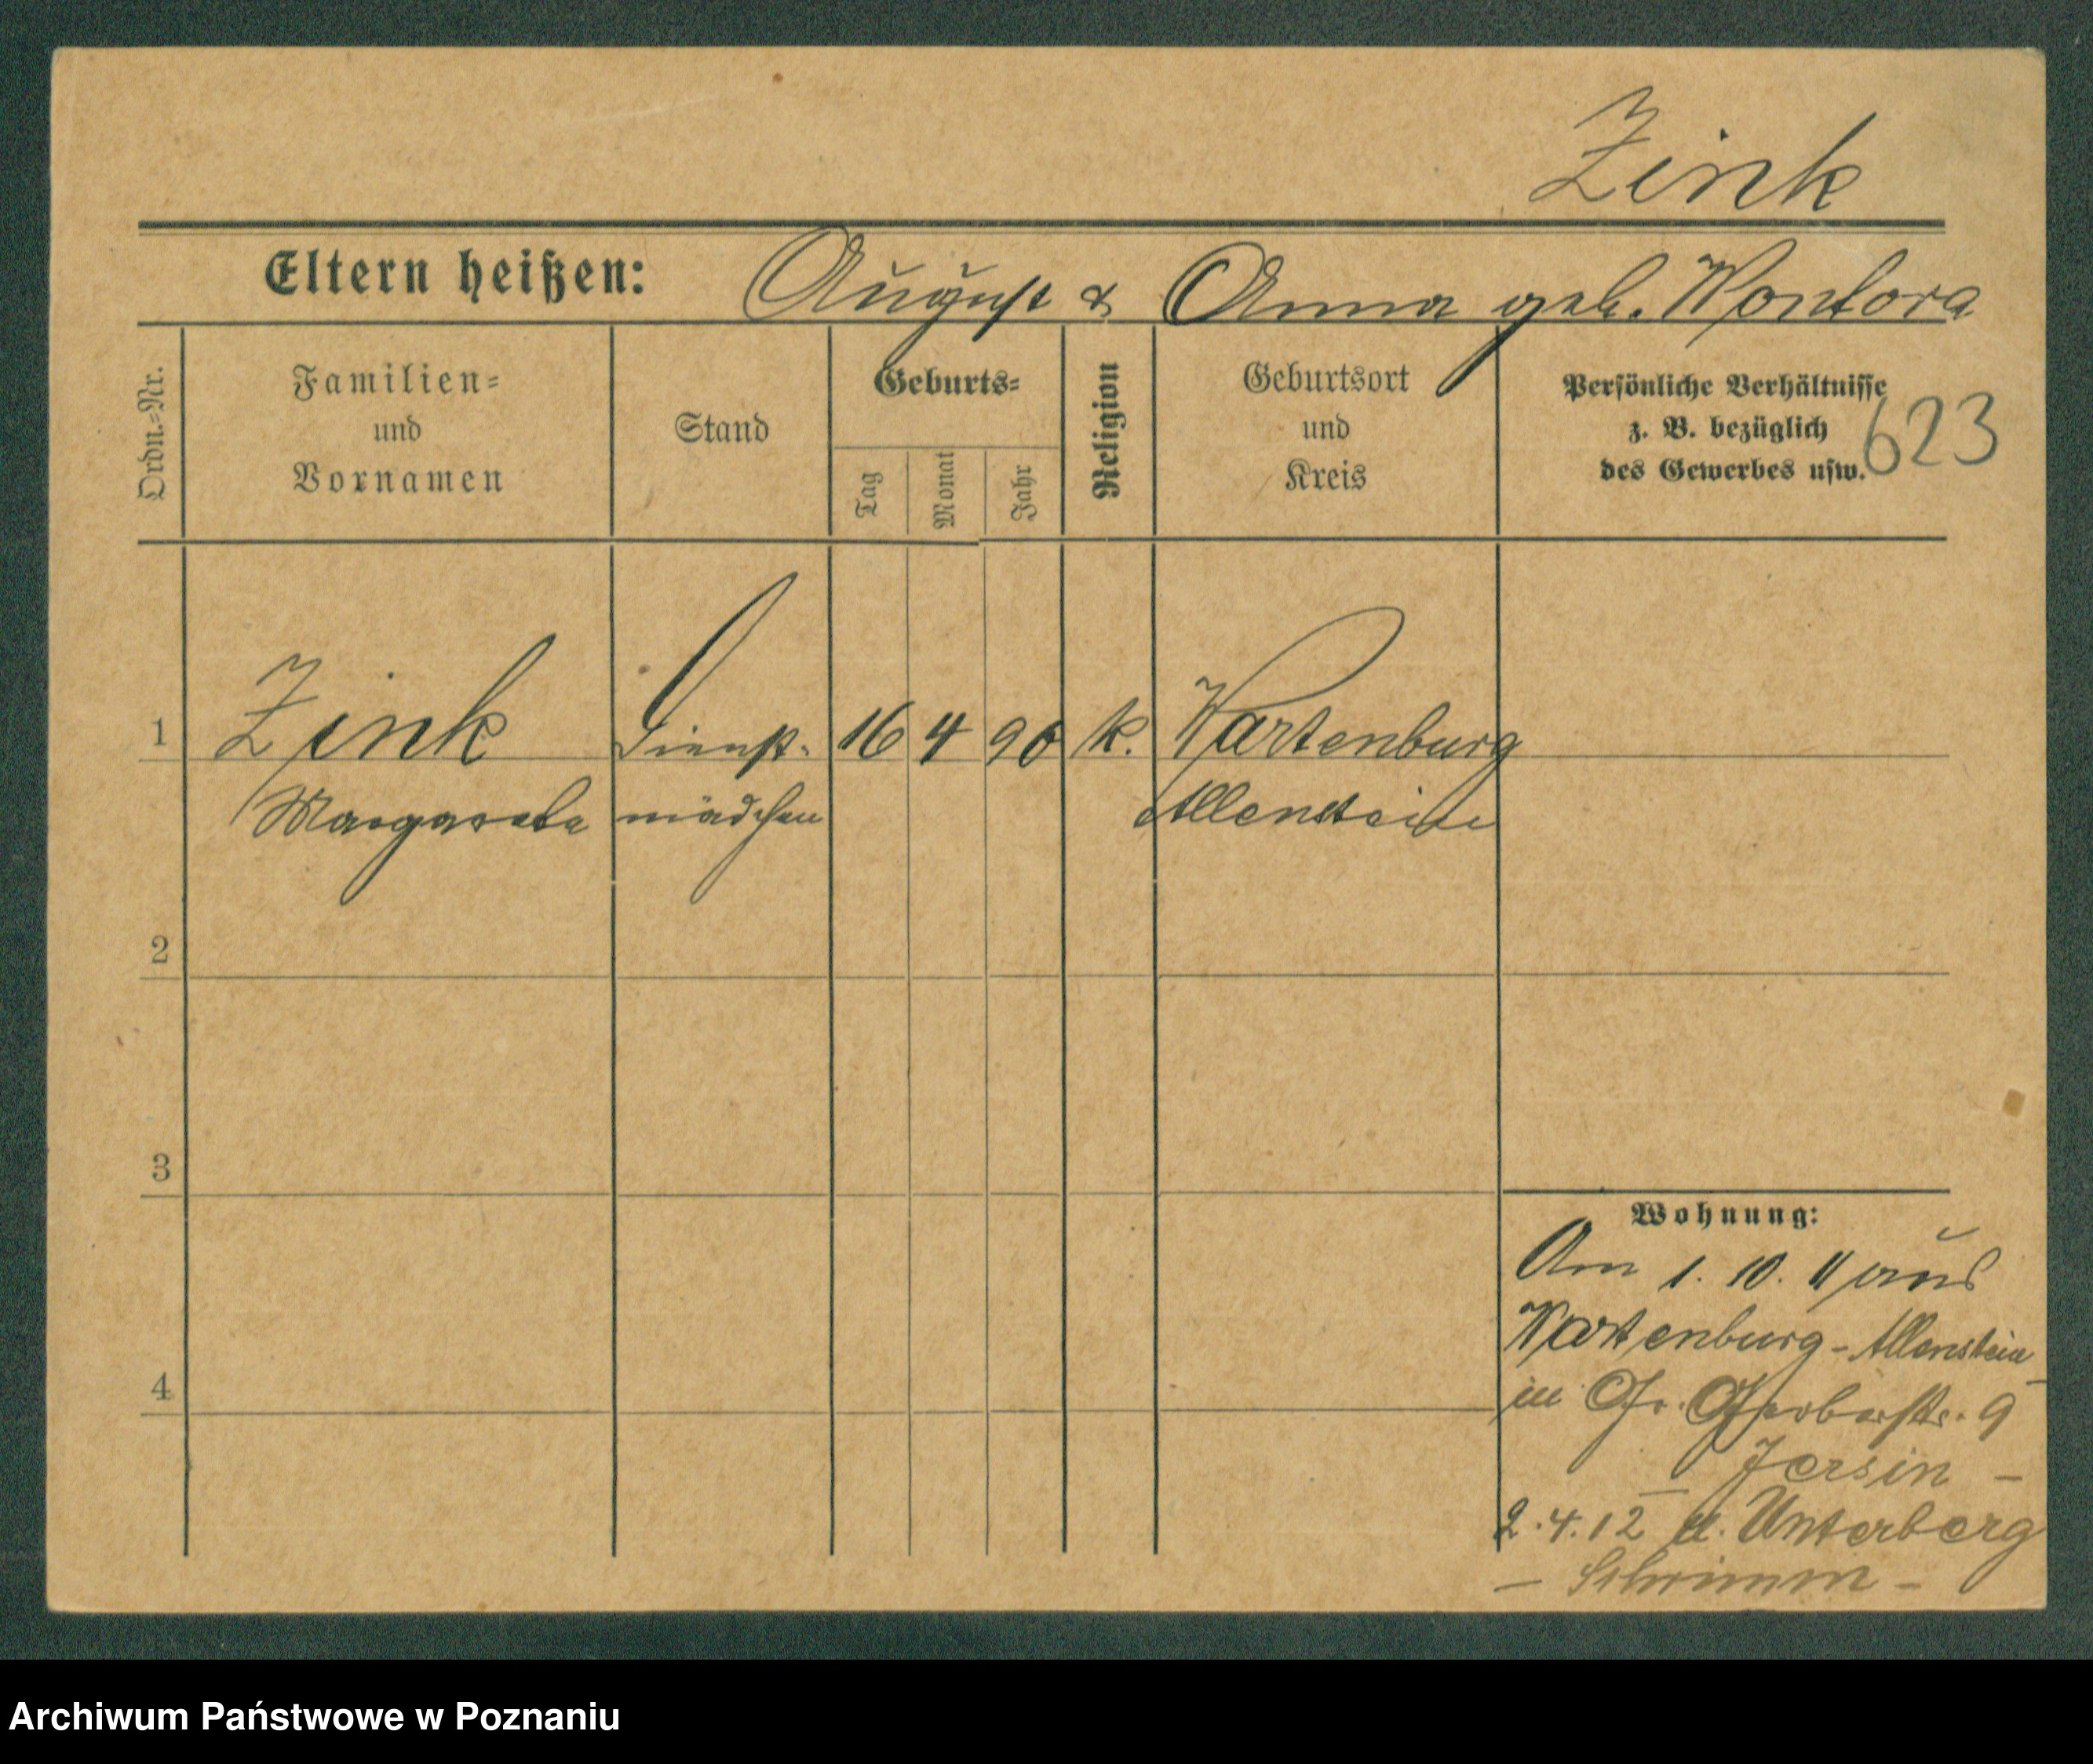 Zink
Eltern heißen: August & Anna geb. Wontora
Ordn.-Nr.
Familien=
und
Vornamen
Stand
Geburts=
Tag
Monat
Jahr
Religion
Geburtsort
und
Kreis
Persönliche Verhältnisse
z. B. bezüglich
des Gewerbes usw.
623
1 Zink Dienst- 16 4 90 k. Wartenburg
Margarete mädchen Allenstein
2
3
4
Wohnung:
Am 1. 10. 11 aus
Wartenburg - Allenstein
in Gr. Gerberstr. 9
Jersin -
2.4.12 n. Unterberg
- Schrimm -
Archiwum Państwowe w Poznaniu